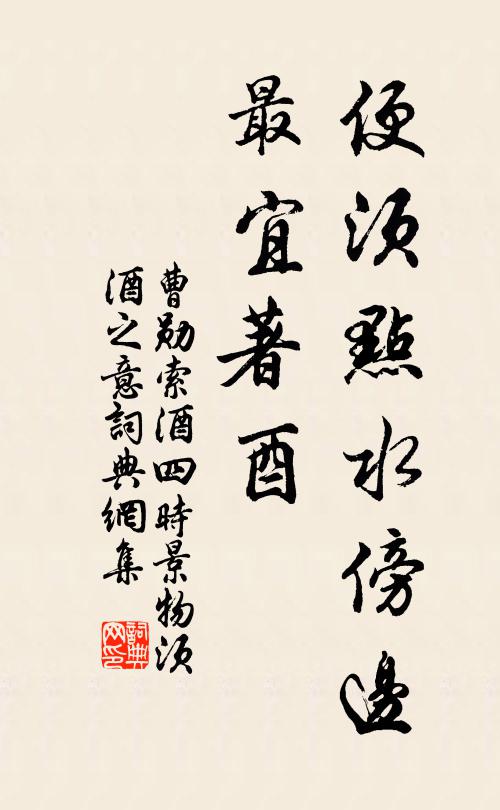 便須點水傍邊
最宜著酉
曹勛索酒四時景物須
酒之意詞典網集
詞典網印